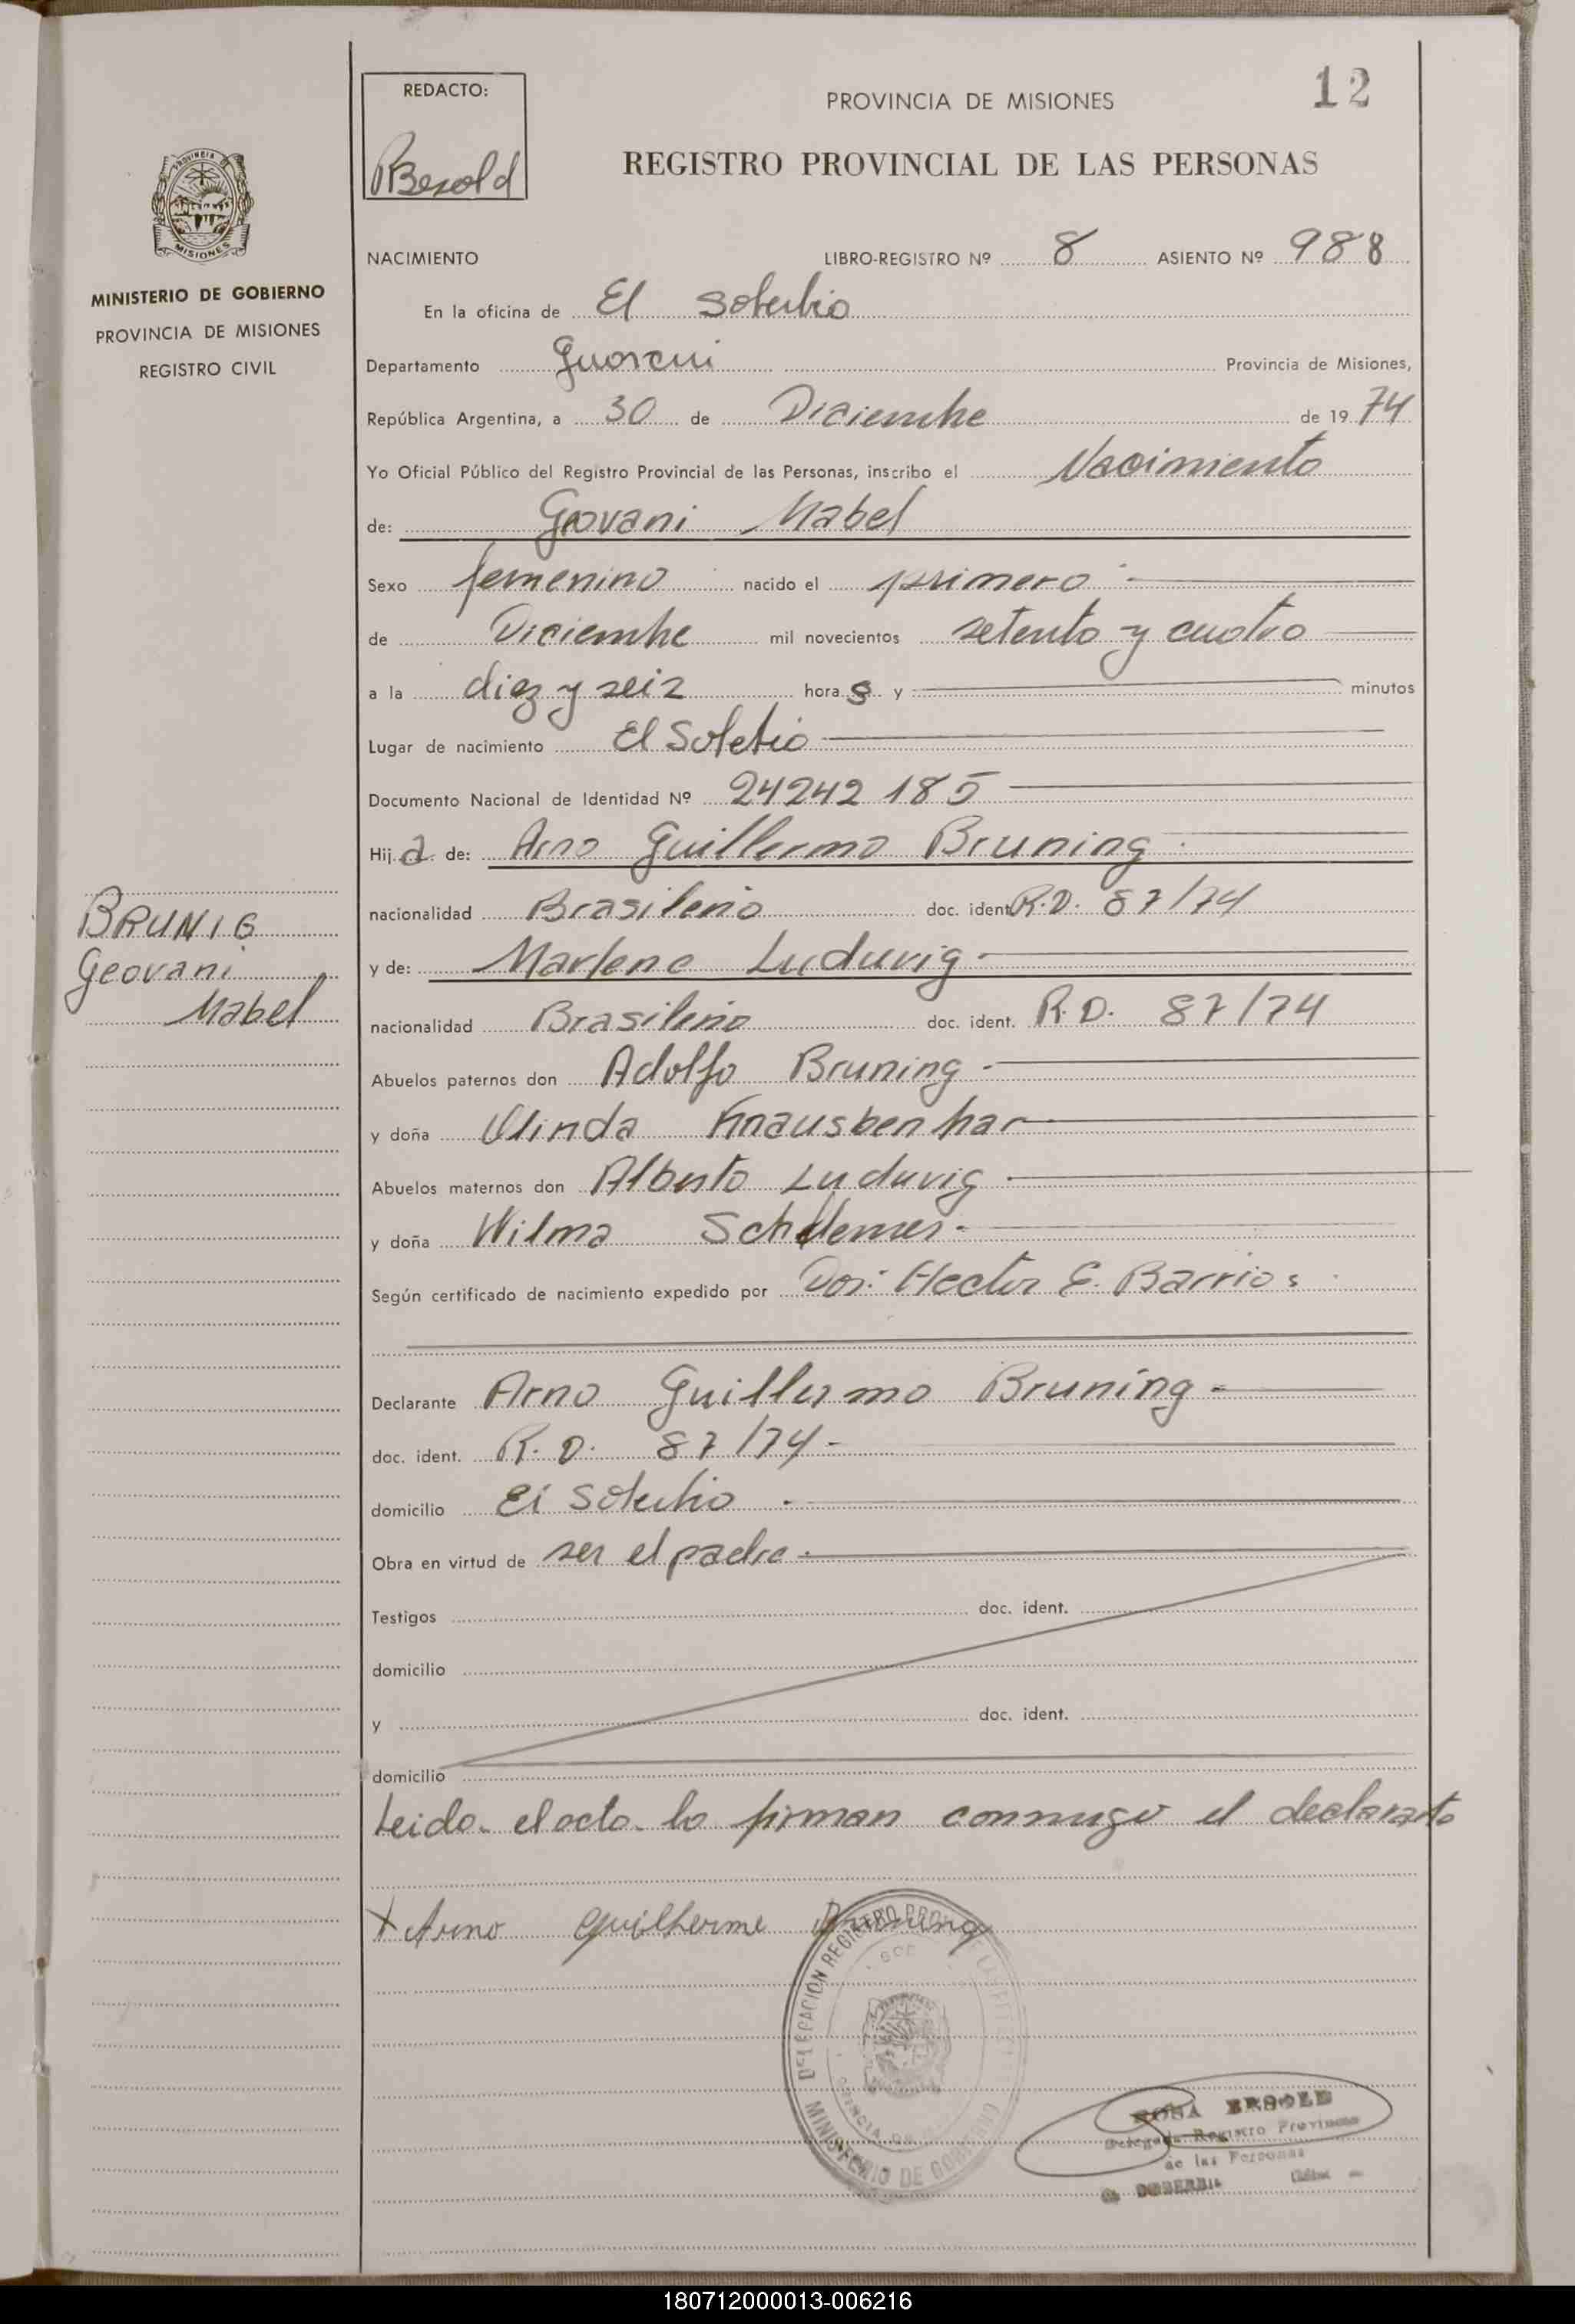 12
REDACTO:
PROVINCIA DE MISIONES
REGISTRO PROVINCIAL DE LAS PERSONAS
PROVINCIA DE
MISIONES
MINISTERIO DE GOBIERNO
PROVINCIA DE MISIONES
REGISTRO CIVIL
NACIMIENTO LIBRO-REGISTRO Nº 8 ASIENTO Nº 988
En la oficina de El Soberbio
Departamento Guarani Provincia de Misiones,
República Argentina, a 30 de Diciembre de 1974
Yo Oficial Público del Registro Provincial de las Personas, inscribo el Nacimiento
de: Geovani Mabel
Sexo femenino nacido el primero
de Diciembre mil novecientos setenta y cuatro
a la diez y seis horas y minutos
Lugar de nacimiento El Sobebio
Documento Nacional de Identidad Nº 24242 185
Hija de: Arno Guillermo Bruning
nacionalidad Brasileño doc. ident. R.D. 87/74
y de: Marlene Luduvig
nacionalidad Brasileño doc. ident. R.D. 87/74
Abuelos paternos don Adolfo Bruning
y doña Olinda Knausbenhar
Abuelos maternos don Alberto Luduvig
y doña Wilma
Según certificado de nacimiento expedido por Hector E. Barrios
BRUNIG
Geovani
Mabel
Declarante Arno Guillermo Bruning
doc. ident. R.D. 87/74
domicilio El Soberbio
Obra en virtud de ser el padre
Testigos doc. ident.
domicilio
y doc. ident.
domicilio
Leida el acta la firman conmigo el declarante
X Arno Guilherme Bruning
DELEGACIÓN REGISTRO PROV
MINISTERIO DE GOBIERNO
ROSA
Delegada Registro Provincial
de las Personas
180712000013-006216